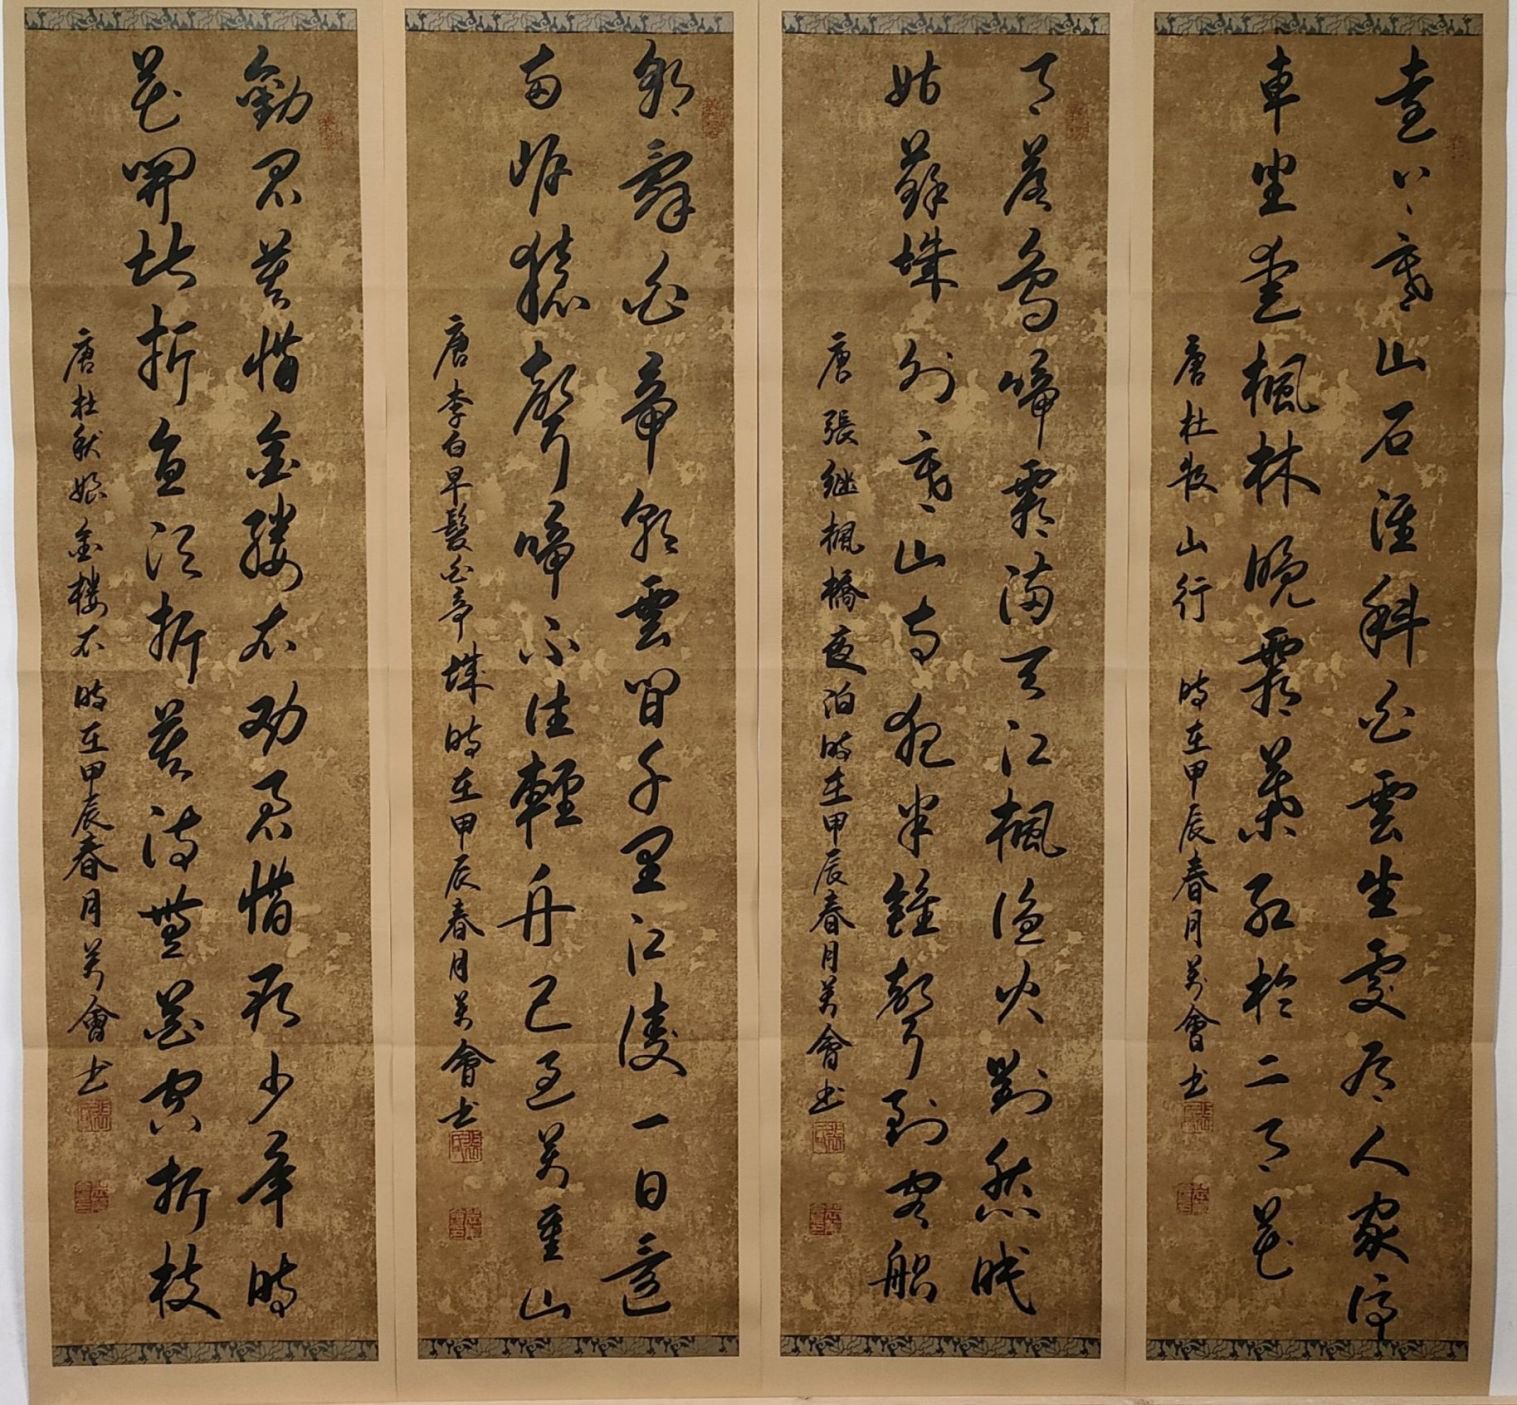 遠上寒山石徑斜白雲生處有人家停
車坐愛楓林晚霜葉紅於二月花
唐杜牧山行 時在甲辰春月英會书
月落烏啼霜滿天江楓漁火對愁眠
姑蘇城外寒山寺夜半鐘聲到客船
唐張继楓橋夜泊時在甲辰春月英會书
朝辭白帝彩雲間千里江陵一日還
兩岸猿聲啼不住輕舟已過萬重山
唐李白早髮白帝城時在甲辰春月英會书
勸君莫惜金縷衣劝君惜取少年時
花開堪折直須折莫待無花空折枝
唐杜秋娘金楼衣時在甲辰春月英會书